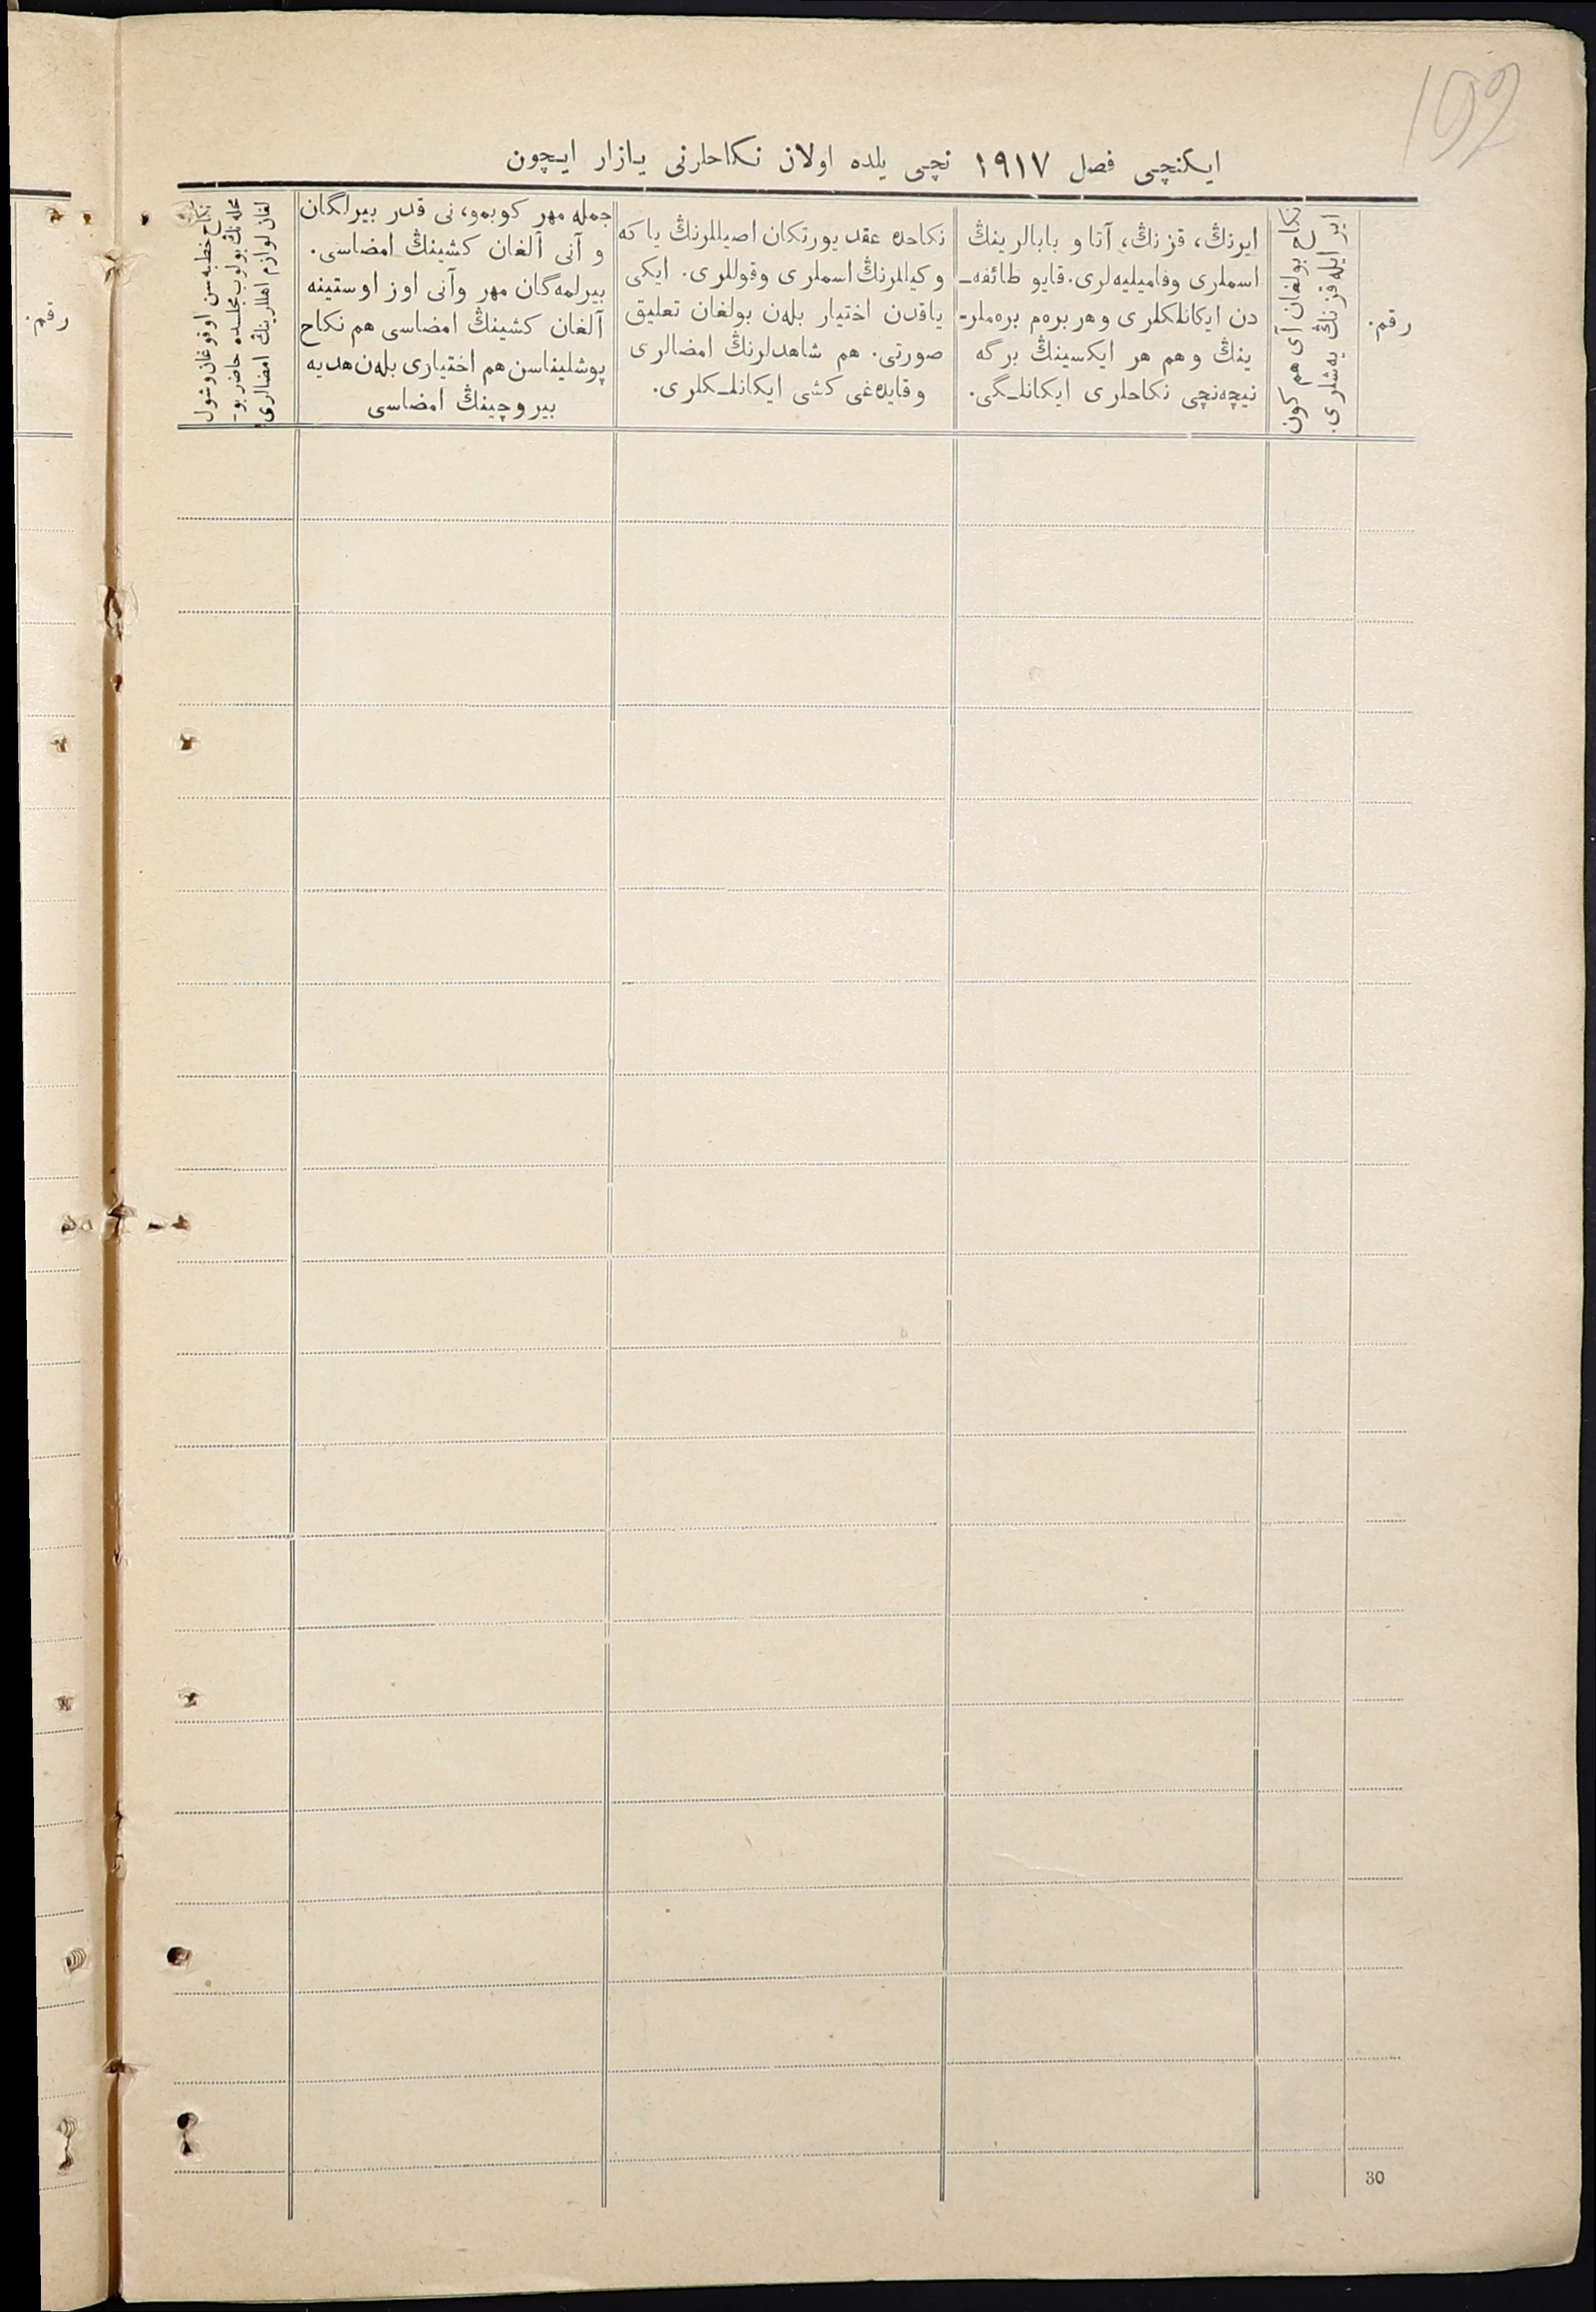 192
ايكنچی فصل ١٩١٧ نچی يلده اولان نكاحلرنی يازار ايچون
رقم.
نكاح بولغان آی هم كون
اير ايله قزنڭ يه‌شلری.
ايرنڭ، قزنڭ، آتا و بابالرينڭ
اسملری وفاميليه‌لری. قايو طائفه‌ـ
دن ايكانلكلری وهر بره‌م بره‌ملرـ
ينڭ وهم هر ايكسينڭ برگه
نيچه‌نچی نكاحلری ايكانلـگی.
نكاحده عقد يورتكان اصيللرنڭ ياكه
وكيللرنڭ اسملری وقوللری. ايكی
ياقدن اختيار بله‌ن بولغان تعليق
صورتی. هم شاهدلرنڭ امضالری
وقايده‌غی كشی ايكانلـكلری.
جمله مهر كوبمو، نی قدر بيرلگان
و آنی آلغان كشينڭ امضاسی.
بيرلمه‌گان مهر وآنی اوز اوستينه
آلغان كشينڭ امضاسی هم نكاح
پوشليناسن هم اختياری بله‌ن هديه
بيروچينڭ امضاسی
نكاح خطبه‌سن اوقوغان وشول
محله‌نڭ بولوب مجلسده حاضر بوـ
لغان لوازم اهللرينڭ امضالری
رقم.
30